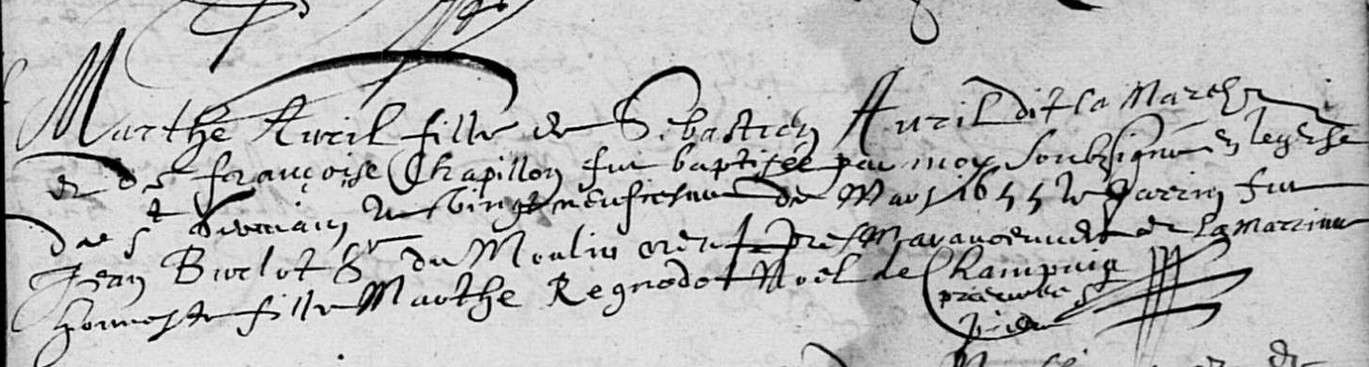 Marthe Avril fille de Sebastien Avril dit la Marche
et de françoise Chapillon fut baptisée par moy soubzsigné en leglise
de St Germain le vingt neufiesme de Mars 1655 le parrin fut
Jean Burlot Sr du Moulin et la marrine
honneste fille Marthe Regnodot Noel de Champuig